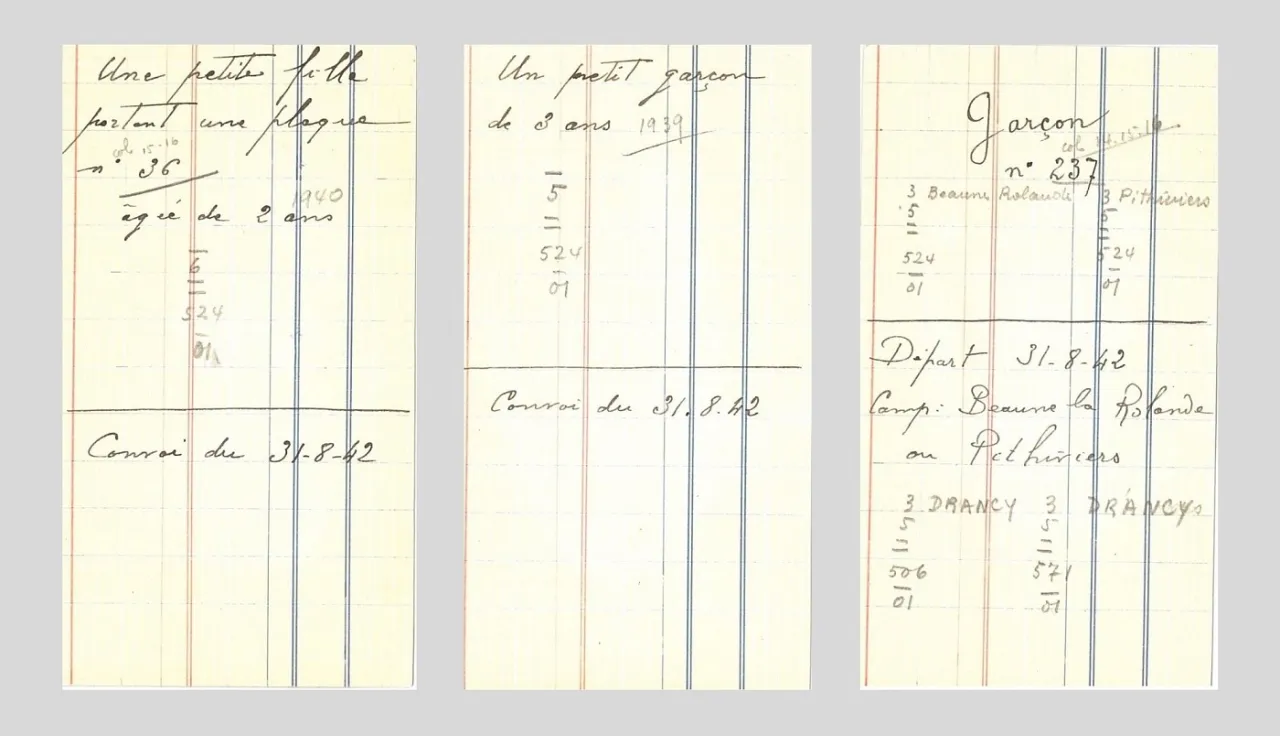 Une petite fille
portant une plaque
col 15-16
n° 36
1940
âgée de 2 ans
6
524
01
Convoi du 31-8-42
Un petit garçon
de 3 ans 1939
5
524
01
Convoi du 31.8.42
Garçon
col 14.15.16
n° 237
3 Beaune Rolande 3 Pithiviers
5 5
524 524
01 01
Départ 31-8-42
Camp: Beaune la Rolande
ou Pithiviers
3 DRANCY 3 DRANCY
5 5
506 571
01 01